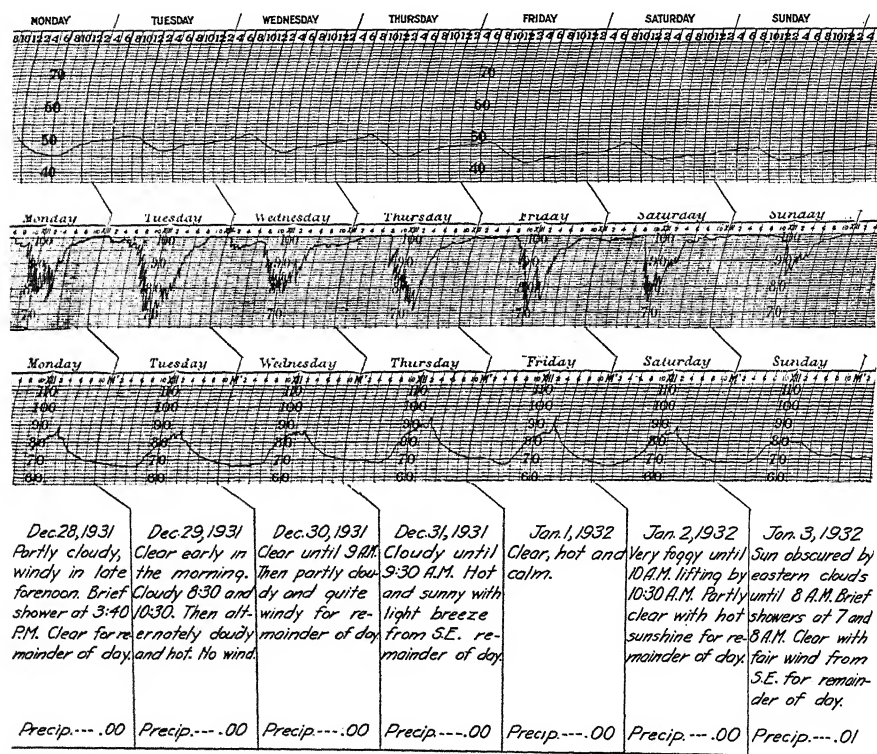 MONDAY TUESDAY WEDNESDAY THURSDAY FRIDAY SATURDAY SUNDAY
70 70
60 60
50 50
40 40
Monday Tuesday Wednesday Thursday Friday Saturday Sunday
100 100 100 100 100 100 100
90 90 90 90 90 90 90
80 80 80 80 80 80 80
70 70 70 70 70 70 70
Monday Tuesday Wednesday Thursday Friday Saturday Sunday
110 110 110 110 110 110 110
100 100 100 100 100 100 100
90 90 90 90 90 90 90
80 80 80 80 80 80 80
70 70 70 70 70 70 70
60 60 60 60 60 60 60
Dec.28,1931
Partly cloudy,
windy in late
forenoon. Brief
shower at 3:40
P.M. Clear for re-
mainder of day.
Precip.---.00
Dec.29,1931
Clear early in
the morning.
Cloudy 8:30 and
10:30. Then alt-
ernately cloudy
and hot. No wind.
Precip.---.00
Dec.30,1931
Clear until 9 A.M.
Then partly clou-
dy and quite
windy for re-
mainder of day
Precip.---.00
Dec.31,1931
Cloudy until
9:30 A.M. Hot
and sunny with
light breeze
from S.E. re-
mainder of day.
Precip.---.00
Jan.1,1932
Clear, hot and
calm.
Precip.---.00
Jan.2,1932
Very foggy until
10 A.M. lifting by
10:30 A.M. Partly
clear with hot
sunshine for re-
mainder of day.
Precip.---.00
Jan.3,1932
Sun obscured by
eastern clouds
until 8 A.M. Brief
showers at 7 and
8 A.M. Clear with
fair wind from
S.E. for remain-
der of day.
Precip.---.01